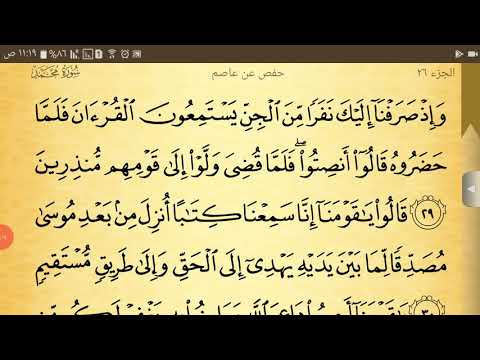 ١١:١٩ ص ٨٦٪
الجزء ٢٦ حفص عن عاصم سُورَةُ مُحَمَّد
وَإِذۡ صَرَفۡنَآ إِلَيۡكَ نَفَرٗا مِّنَ ٱلۡجِنِّ يَسۡتَمِعُونَ ٱلۡقُرۡءَانَ فَلَمَّا
حَضَرُوهُ قَالُوٓاْ أَنصِتُواْۖ فَلَمَّا قُضِيَ وَلَّوۡاْ إِلَىٰ قَوۡمِهِم مُّنذِرِينَ
٢٩ قَالُواْ يَٰقَوۡمَنَآ إِنَّا سَمِعۡنَا كِتَٰبًا أُنزِلَ مِنۢ بَعۡدِ مُوسَىٰ
مُصَدِّقٗا لِّمَا بَيۡنَ يَدَيۡهِ يَهۡدِيٓ إِلَى ٱلۡحَقِّ وَإِلَىٰ طَرِيقٖ مُّسۡتَقِيمٖ
٣٠